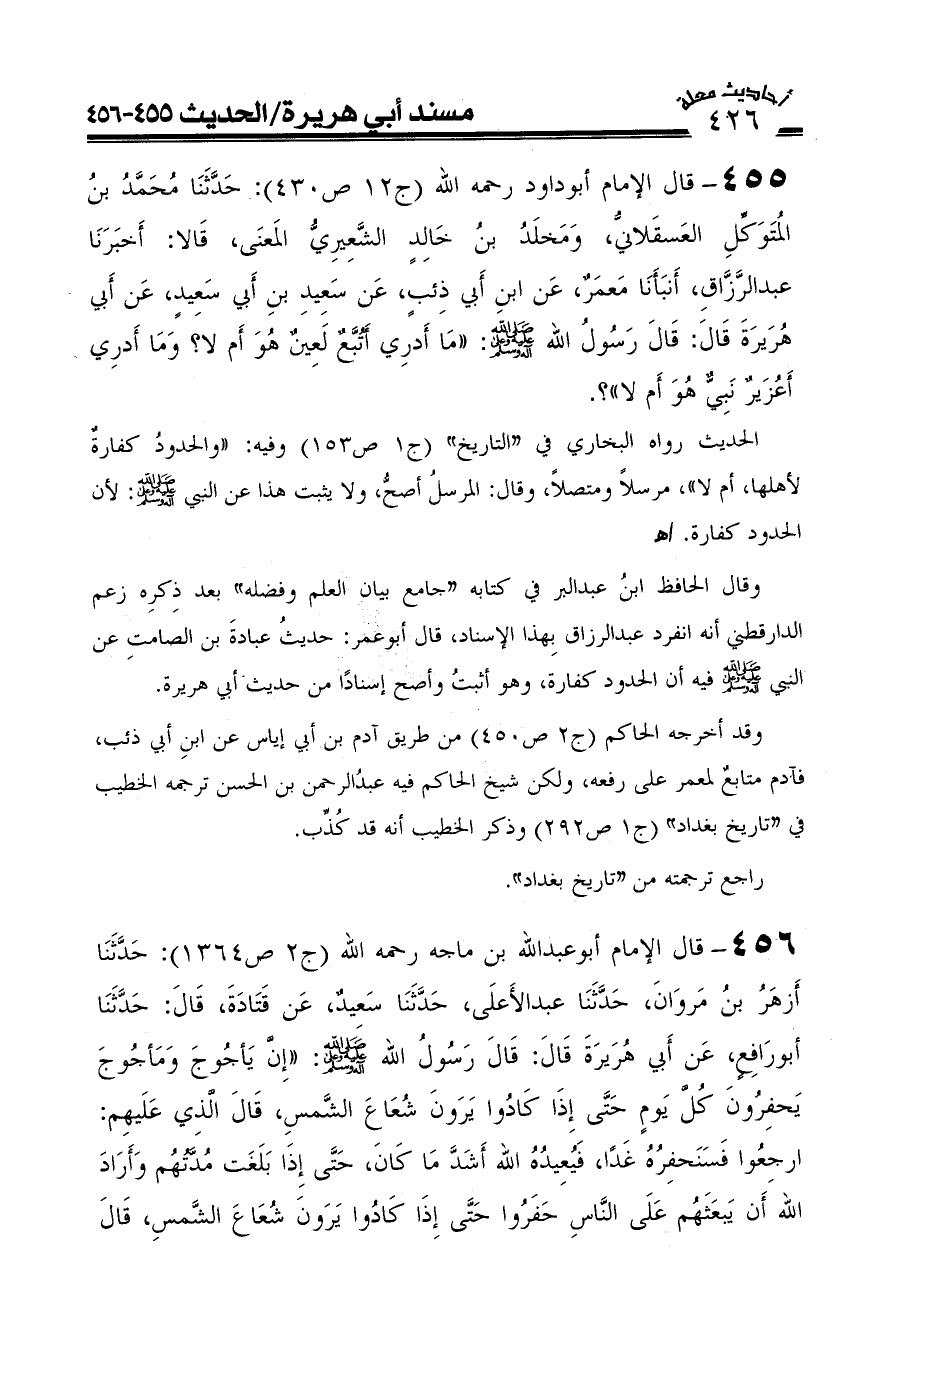 أحاديث معلة
٤٢٦
مسند أبي هريرة/الحديث ٤٥٥-٤٥٦
٤٥٥ـ قال الإمام أبوداود رحمه الله (ج١٢ ص٤٣٠): حَدَّثَنَا مُحَمَّدُ بنُ
المُتَوَكِّلِ العَسقَلانيُّ، وَمَخلَدُ بنُ خَالِدٍ الشَّعِيرِيُّ المَعنَى، قَالا: أَخبَرَنَا
عبدالرَّزَّاقِ، أَنبَأَنَا مَعمَرٌ، عَن ابنِ أَبي ذئبٍ، عَن سَعِيدِ بنِ أَبي سَعِيدٍ، عَن أَبي
هُرَيرَةَ قَالَ: قَالَ رَسُولُ الله ﷺ: «مَا أَدرِي أَتُبَّعٌ لَعِينٌ هُوَ أَم لا؟ وَمَا أَدرِي
أَعُزَيرٌ نَبِيٌّ هُوَ أَم لا»؟.
الحديث رواه البخاري في "التاريخ" (ج١ ص١٥٣) وفيه: «والحدودُ كفارةٌ
لأهلها، أم لا»، مرسلاً ومتصلاً، وقال: المرسلُ أصحُّ، ولا يثبت هذا عن النبي ﷺ: لأن
الحدود كفارة. اهـ
وقال الحافظ ابنُ عبدالبر في كتابه "جامع بيان العلم وفضله" بعد ذِكرِه زعم
الدارقطني أنه انفرد عبدالرزاق بِهذا الإسناد، قال أبوعمر: حديثُ عبادةَ بن الصامتِ عن
النبي ﷺ فيه أن الحدود كفارة، وهو أثبتُ وأصح إسنادًا من حديث أبي هريرة.
وقد أخرجه الحاكم (ج٢ ص٤٥٠) من طريق آدم بن أبي إياس عن ابنِ أبي ذئب،
فآدم متابعٌ لمعمر على رفعه، ولكن شيخ الحاكم فيه عبدُالرحمن بن الحسن ترجمه الخطيب
في "تاريخ بغداد" (ج١ ص٢٩٢) وذكر الخطيب أنه قد كُذِّب.
راجع ترجمته من "تاريخ بغداد".
٤٥٦ـ قال الإمام أبوعبدالله بن ماجه رحمه الله (ج٢ ص١٣٦٤): حَدَّثَنَا
أَزهَرُ بنُ مَروَانَ، حَدَّثَنَا عبدالأَعلَى، حَدَّثَنَا سَعِيدٌ، عَن قَتَادَةَ، قَالَ: حَدَّثَنَا
أبورَافِعٍ، عَن أَبي هُرَيرَةَ قَالَ: قَالَ رَسُولُ الله ﷺ: «إِنَّ يَأجُوجَ وَمَأجُوجَ
يَحفِرُونَ كُلَّ يَومٍ حَتَّى إِذَا كَادُوا يَرَونَ شُعَاعَ الشَّمسِ، قَالَ الَّذِي عَلَيهِم:
ارجِعُوا فَسَنَحفِرُهُ غَدًا، فَيُعِيدُهُ الله أَشَدَّ مَا كَانَ، حَتَّى إِذَا بَلَغَت مُدَّتُهُم وَأَرَادَ
الله أَن يَبعَثَهُم عَلَى النَّاسِ حَفَرُوا حَتَّى إِذَا كَادُوا يَرَونَ شُعَاعَ الشَّمسِ، قَالَ